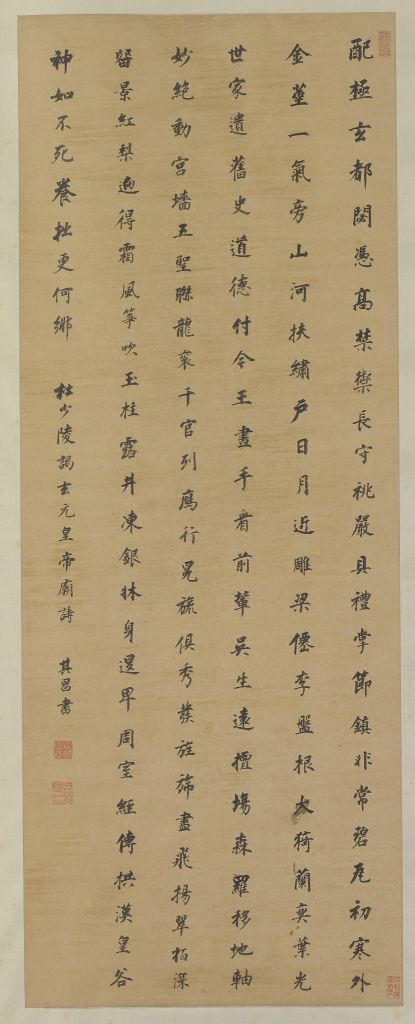 配極玄都閟憑高禁禦長守祧嚴具禮掌節鎮非常碧瓦初寒外
金莖一氣旁山河扶繡戶日月近雕梁僊李盤根大猗蘭奕葉光
世家遺舊史道德付今王畫手看前輩吳生遠擅場森羅移地軸
妙絕動宮墻五聖聯龍袞千官列鴈行冕旒俱秀發旌旆盡飛揚翠栢深
留景紅梨逈得霜風箏吹玉柱露井凍銀牀身退卑周室經傳拱漢皇谷
神如不死養拙更何鄉 杜少陵謁玄元皇帝廟詩 其昌書